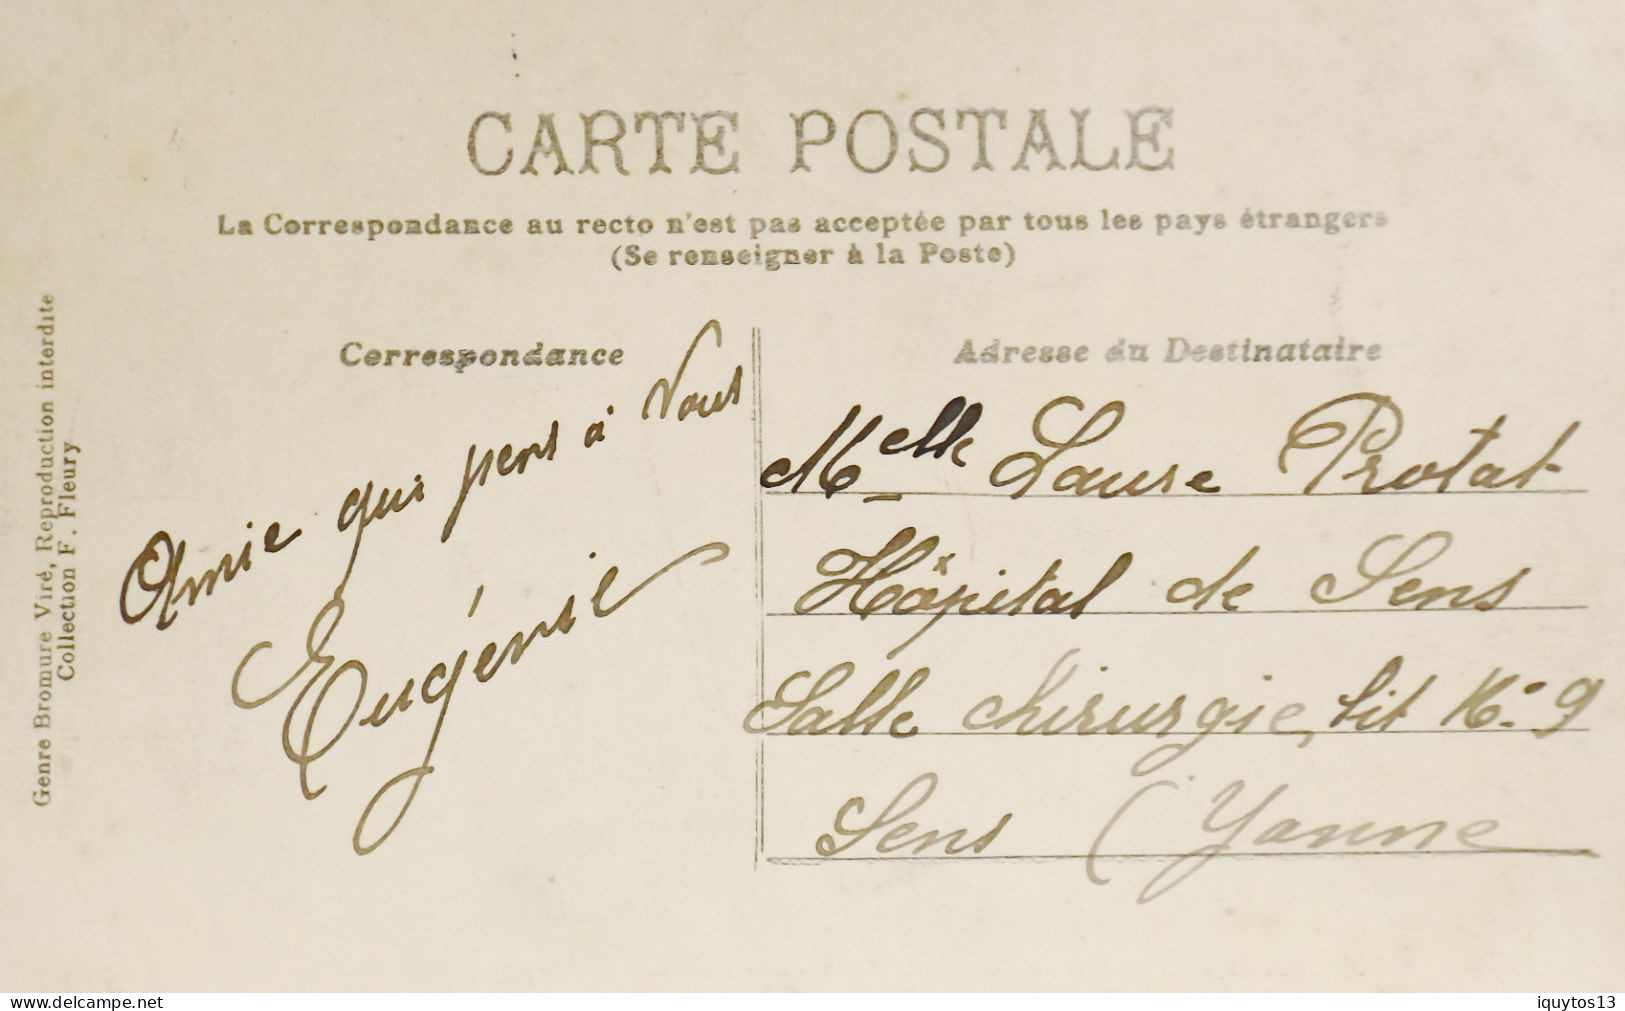 CARTE POSTALE
La Correspondance au recto n'est pas acceptée par tous les pays étrangers
(Se renseigner à la Poste)
Genre Bromure Viré, Reproduction interdite
Collection F. Fleury
Correspondance
Amie qui pens à Vous
Eugénie
Adresse du Destinataire
Melle Laure Protat
Hôpital de Sens
Salle chirurgie, lit No 9
Sens (Yonne
www.delcampe.net
iquytos13